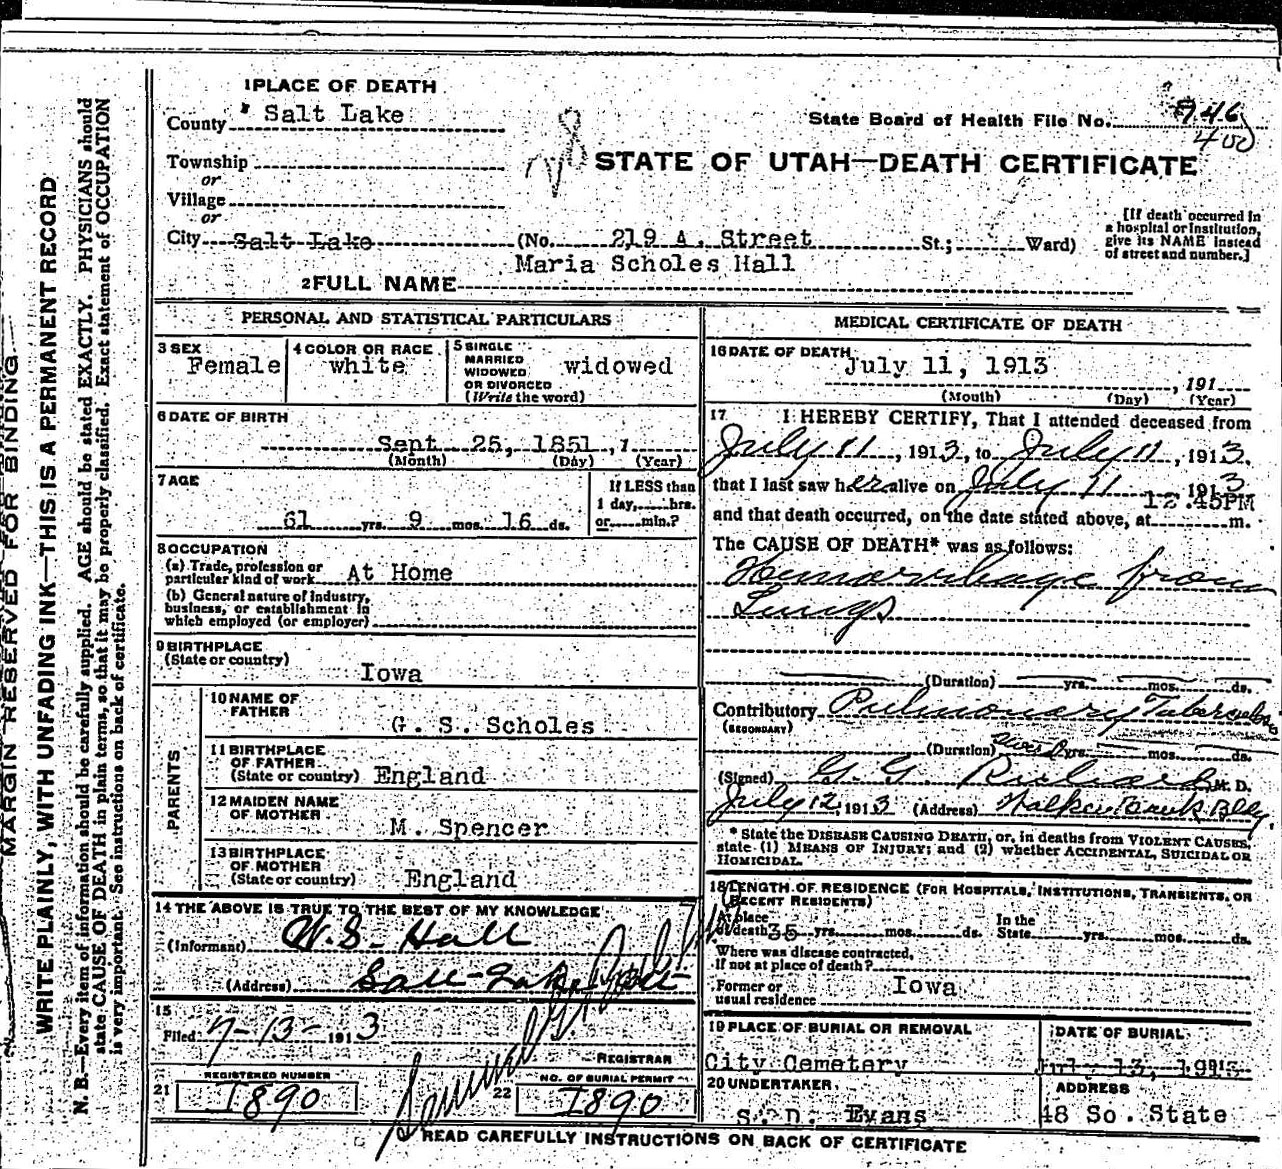 MARGIN RESERVED FOR BINDING
WRITE PLAINLY, WITH UNFADING INK—THIS IS A PERMANENT RECORD
N. B.—Every item of information should be carefully supplied. AGE should be stated EXACTLY. PHYSICIANS should
state CAUSE OF DEATH in plain terms, so that it may be properly classified. Exact statement of OCCUPATION
is very important. See instructions on back of certificate.
1 PLACE OF DEATH
County Salt Lake
State Board of Health File No. 946
400
Township
or
Village
or
STATE OF UTAH—DEATH CERTIFICATE
City Salt Lake (No. 219 A. Street St.; Ward)
[If death occurred in
a hospital or institution,
give its NAME instead
of street and number.]
2 FULL NAME Maria Scholes Hall
PERSONAL AND STATISTICAL PARTICULARS
3 SEX Female
4 COLOR OR RACE white
5 SINGLE
MARRIED
WIDOWED
OR DIVORCED
(Write the word) widowed
6 DATE OF BIRTH
Sept 25, 1851, 1
(Month) (Day) (Year)
7 AGE
61 yrs. 9 mos. 16 ds.
If LESS than
1 day, hrs.
or min.?
8 OCCUPATION
(a) Trade, profession or
particular kind of work At Home
(b) General nature of industry,
business, or establishment in
which employed (or employer)
9 BIRTHPLACE
(State or country) Iowa
PARENTS
10 NAME OF
FATHER G. S. Scholes
11 BIRTHPLACE
OF FATHER
(State or country) England
12 MAIDEN NAME
OF MOTHER M. Spencer
13 BIRTHPLACE
OF MOTHER
(State or country) England
14 THE ABOVE IS TRUE TO THE BEST OF MY KNOWLEDGE
(Informant) W. S. Hall
(Address) Salt Lake
15
Filed 7-13-1913
REGISTRAR
21 REGISTERED NUMBER
1890
22 NO. OF BURIAL PERMIT
1890
MEDICAL CERTIFICATE OF DEATH
16 DATE OF DEATH
July 11, 1913
, 191
(Month) (Day) (Year)
17 I HEREBY CERTIFY, That I attended deceased from
July 11, 1913, to July 11, 1913.
that I last saw her alive on July 11 1913
and that death occurred, on the date stated above, at 12.45PM m.
The CAUSE OF DEATH* was as follows:
Hemorrhage from
Lungs
(Duration) yrs. mos. ds.
Contributory Pulmonary Tuberculos
(SECONDARY)
(Duration) yrs. mos. ds.
(Signed) G. G. Richards M. D.
July 12, 1913 (Address) Walker Bank Bldg.
* State the DISEASE CAUSING DEATH, or, in deaths from VIOLENT CAUSES,
state (1) MEANS OF INJURY; and (2) whether ACCIDENTAL, SUICIDAL OR
HOMICIDAL.
18 LENGTH OF RESIDENCE (FOR HOSPITALS, INSTITUTIONS, TRANSIENTS, OR
RECENT RESIDENTS)
At place
of death 35 yrs. mos. ds. In the
State yrs. mos. ds.
Where was disease contracted,
If not at place of death?
Former or
usual residence Iowa
19 PLACE OF BURIAL OR REMOVAL
City Cemetery
DATE OF BURIAL
July 13, 1913
20 UNDERTAKER
S. D. Evans
ADDRESS
48 So. State
READ CAREFULLY INSTRUCTIONS ON BACK OF CERTIFICATE